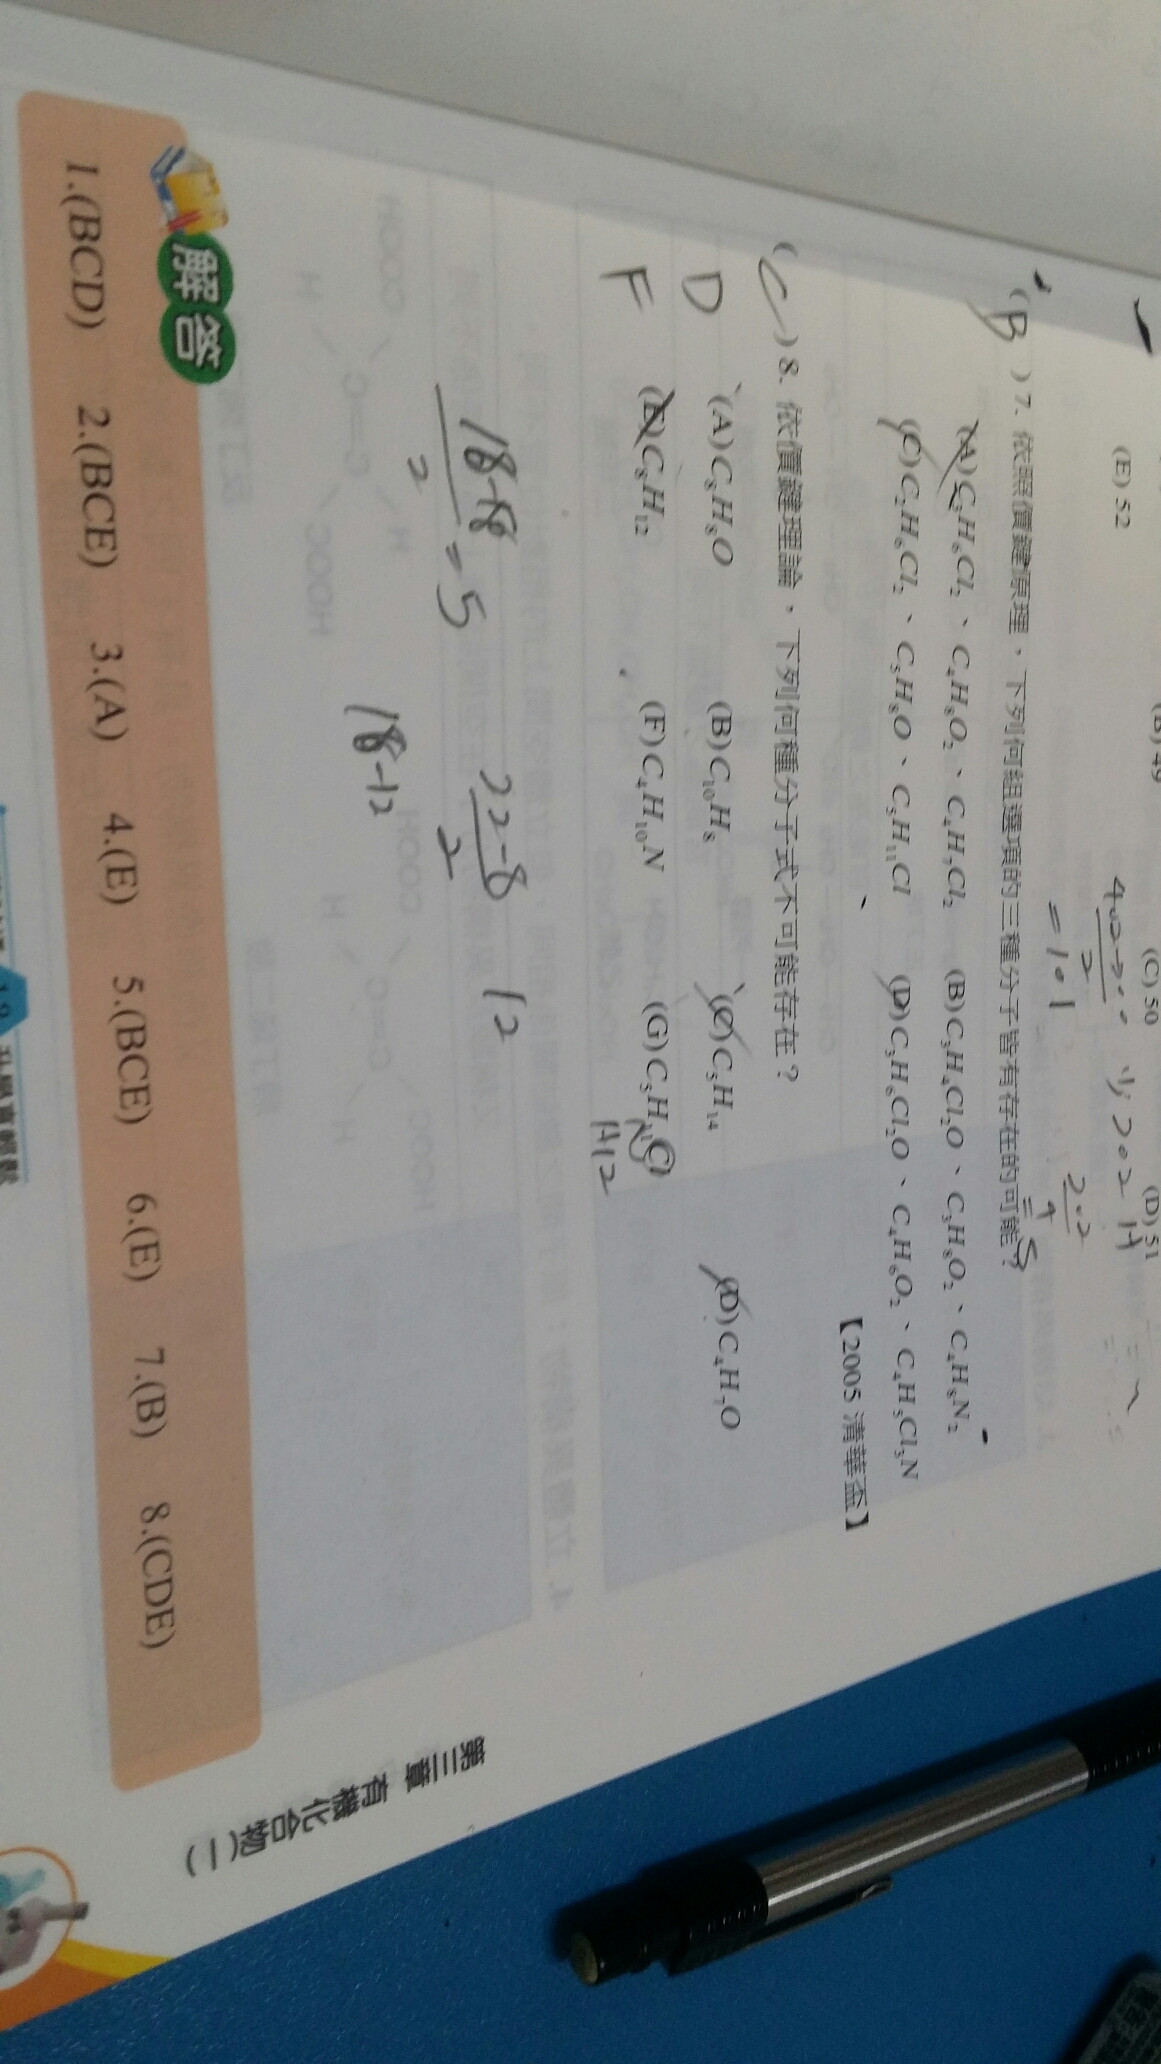 (B) 49
(C) 50
(D) 51
(E) 52
402-200
2
=101
少202 H
202
4
= 5
(B)7. 依照價鍵原理，下列何組選項的三種分子皆有存在的可能？
(A)C₃H₆Cl₂、C₄H₈O₂、C₄H₇Cl₂ (B)C₃H₄Cl₂O、C₃H₈O₂、C₄H₈N₂
(C)C₂H₆Cl₂、C₅H₈O、C₅H₁₁Cl (D)C₃H₆Cl₂O、C₄H₆O₂、C₄H₅Cl₃N
【2005 清華盃】
(C)8. 依價鍵理論，下列何種分子式不可能存在？
D (A)C₈H₈O (B)C₁₀H₈ (C)C₅H₁₄ (D)C₄H₇O
F (E)C₈H₁₂ (F)C₄H₁₀N (G)C₅H₁₁Cl
H12
18-8
2
=5
22-8
2
12
18-12
解答
1.(BCD) 2.(BCE) 3.(A) 4.(E) 5.(BCE) 6.(E) 7.(B) 8.(CDE)
第三章 有機化合物(一)